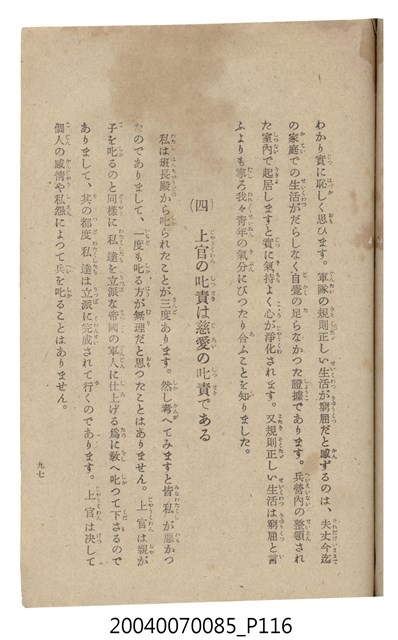 わかり實に恥しく思ひます。軍隊の規則正しい生活が窮屈だと感ずるのは、夫丈今迄
の家庭での生活がだらしなく、自覺の足らなかつた證據であります。兵營內の整頓され
た室內で起居しますと實に氣持よく心が淨化されます。又規則正しい生活は窮屈と言
ふよりも寧ろ我々青年の氣分にぴつたり合ふことを知りました。
(四) 上官の叱責は慈愛の叱責である
私は班長殿から叱られたことが三度あります。然し考へてみますと皆私が惡かつ
たのでありまして、一度も叱る方が無理だと思つたことはありません。上官は親が
子を叱るのと同樣に私達を立派な帝國の軍人に仕上げる爲に敎へ叱つて下さるので
ありまして、其の都度私達は立派に完成されて行くのであります。上官は決して
個人の感情や私怨によつて兵を叱ることはありません。
九七
20040070085_P116